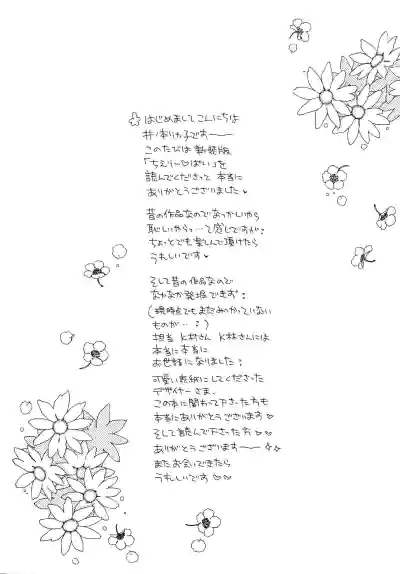 はじめまして こんにちは
井ノ本リカ子です――
このたびは 新装版
「ちぇりー♡ぱい」を
読んでくださって 本当に
ありがとうございました♥
昔の作品なのでなつかしいやら
恥しいやら…って感じですが:
ちょっとでも楽しんで頂けたら
うれしいです♥
そして昔の作品なので
なかなか発掘できず:
(現時点でもまだみつかっていない
ものが…:)
担当 K村さん K林さんには
本当に本当に
お世話になりました:
可愛い表紙にしてくださった
デザイナーさま、
この本に関わって下さった方も
本当にありがとうございます♥
そして読んで下さった方♥♥
ありがとうございます――☆☆
またお会いできたら
うれしいです♡♡